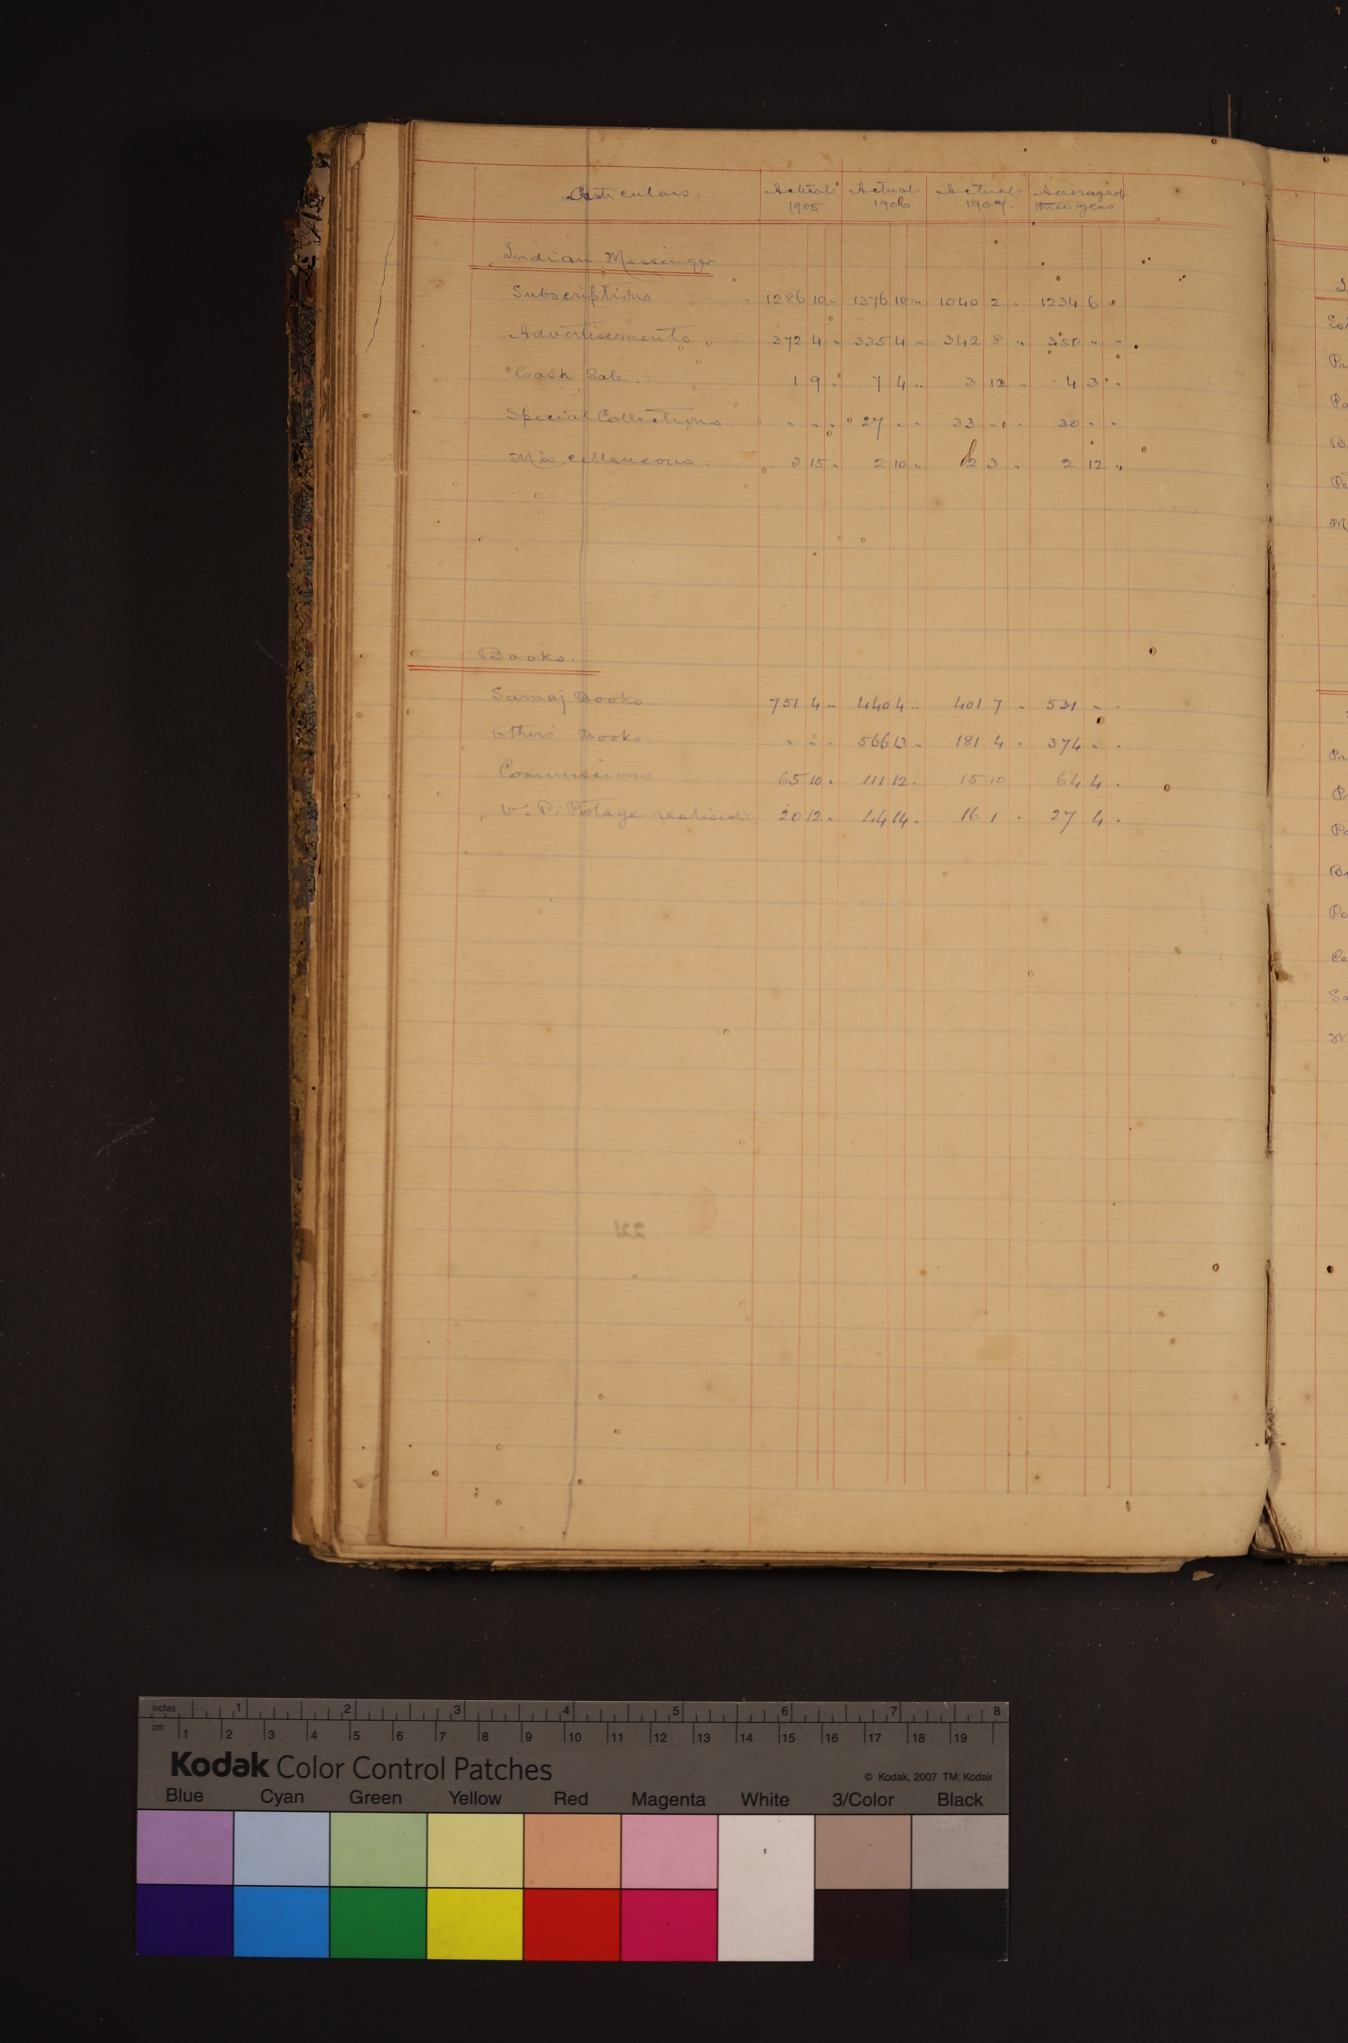 Particulars. Actuals 1905 Actual 1906 Actuals 1907. Average of three years
Indian Messenger
Subscriptions 1286 10 - 1376 10 - 1040 2 - 1234 6 -
Advertisements 372 4 - 335 4 - 342 8 - 350 - -
Cash Sale. 1 9 - 7 4 - 3 12 - 4 3 -
Special Collections - - - 27 - - 33 - - 30 - -
Miscellaneous. 3 15 - 2 10 - 2 3 - 2 12 -
Books.
Samaj Books. 751 4 - 440 4 - 401 7 - 531 - -
Others' Books - - - 566 13 - 181 4 - 374 - -
Commissions 65 10 - 111 12 - 15 10 64 4 -
V. P. Postage realised 20 12 - 44 14 - 16 1 - 27 4 -
221
inches 1 2 3 4 5 6 7 8
cm 1 2 3 4 5 6 7 8 9 10 11 12 13 14 15 16 17 18 19
Kodak Color Control Patches © Kodak, 2007 TM: Kodak
Blue Cyan Green Yellow Red Magenta White 3/Color Black